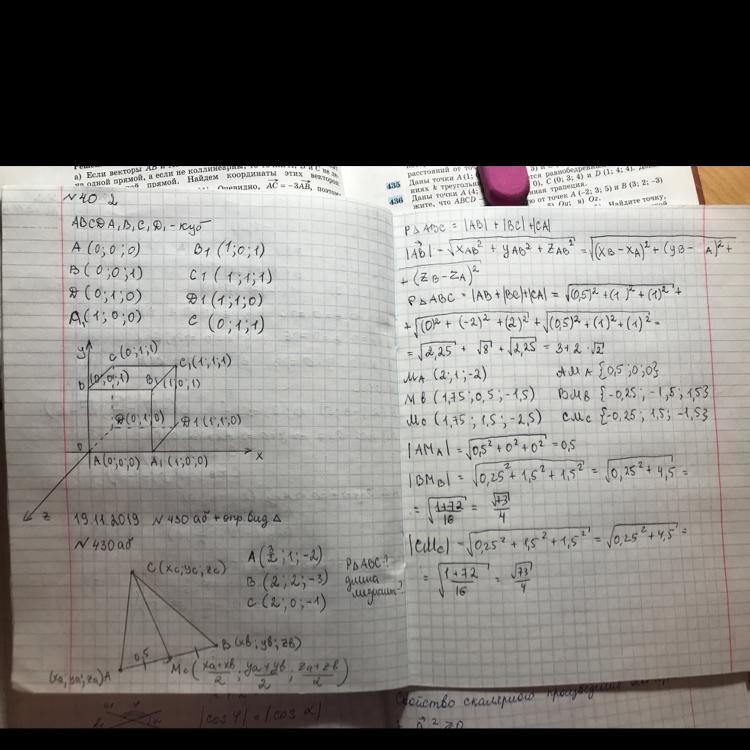 а) Если векторы AB и
на одной прямой, а если не коллинеарны,
прямой. Найдем координаты этих векторов.
Очевидно, AC = -3AB, поэтому
435 Даны точки A(1;
C (0; 3; 4) и D (1; 4; 4).
436 Даны точки A (4;
жите, что ABCD
от точек A (-2; 3; 5) и B (3; 2; -3)
N 402
ABCDA₁B₁C₁D₁ - куб
A (0; 0; 0) B₁ (1; 0; 1)
B (0; 0; 1) C₁ (1; 1; 1)
D (0; 1; 0) D1 (1; 1; 0)
A₁ (1; 0; 0) C (0; 1; 1)
y C (0; 1; 1)
C₁ (1; 1; 1)
B (0; 0; 1) B₁ (1; 0; 1)
D (0; 1; 0) D1 (1; 1; 0)
0 A (0; 0; 0) A₁ (1; 0; 0) x
z
19.11.2019 N 430 аб + опр. вид Δ
N 430 аб
C (xc; yc; zc) A (3/2; 1; -2) PΔABC?
B (2; 2; -3) длина
C (2; 0; -1) медиан?
0,5 B (xb; yb; zb)
(xa; ya; za) A Mc ((xa+xb)/2; (ya+yb)/2; (za+zb)/2)
|cos φ| = |cos α|
PΔABC = |AB| + |BC| + |CA|
|AB| = √(xAB² + yAB² + zAB²) = √((xB - xA)² + (yB - A)² +
+ (zB - zA)²
PΔABC = |AB + |BC| + |CA| = √((0,5)² + (1)² + (1)²) +
+ √((0)² + (-2)² + (2)²) + √((0,5)² + (1)² + (1)²) =
= √2,25 + √8 + √2,25 = 3 + 2·√2
MA (2; 1; -2) AMA {0,5; 0; 0}
MB (1,75; 0,5; -1,5) BMB {-0,25; -1,5; 1,5}
MC (1,75; 1,5; -2,5) CMC {-0,25; 1,5; -1,5}
|AMA| = √(0,5² + 0² + 0²) = 0,5
|BMB| = √(0,25² + 1,5² + 1,5²) = √(0,25² + 4,5) =
= √((1+72)/16) = √73/4
|CMC| = √(0,25² + 1,5² + 1,5²) = √(0,25² + 4,5) =
= √((1+72)/16) = √73/4
Свойство скалярного произведения